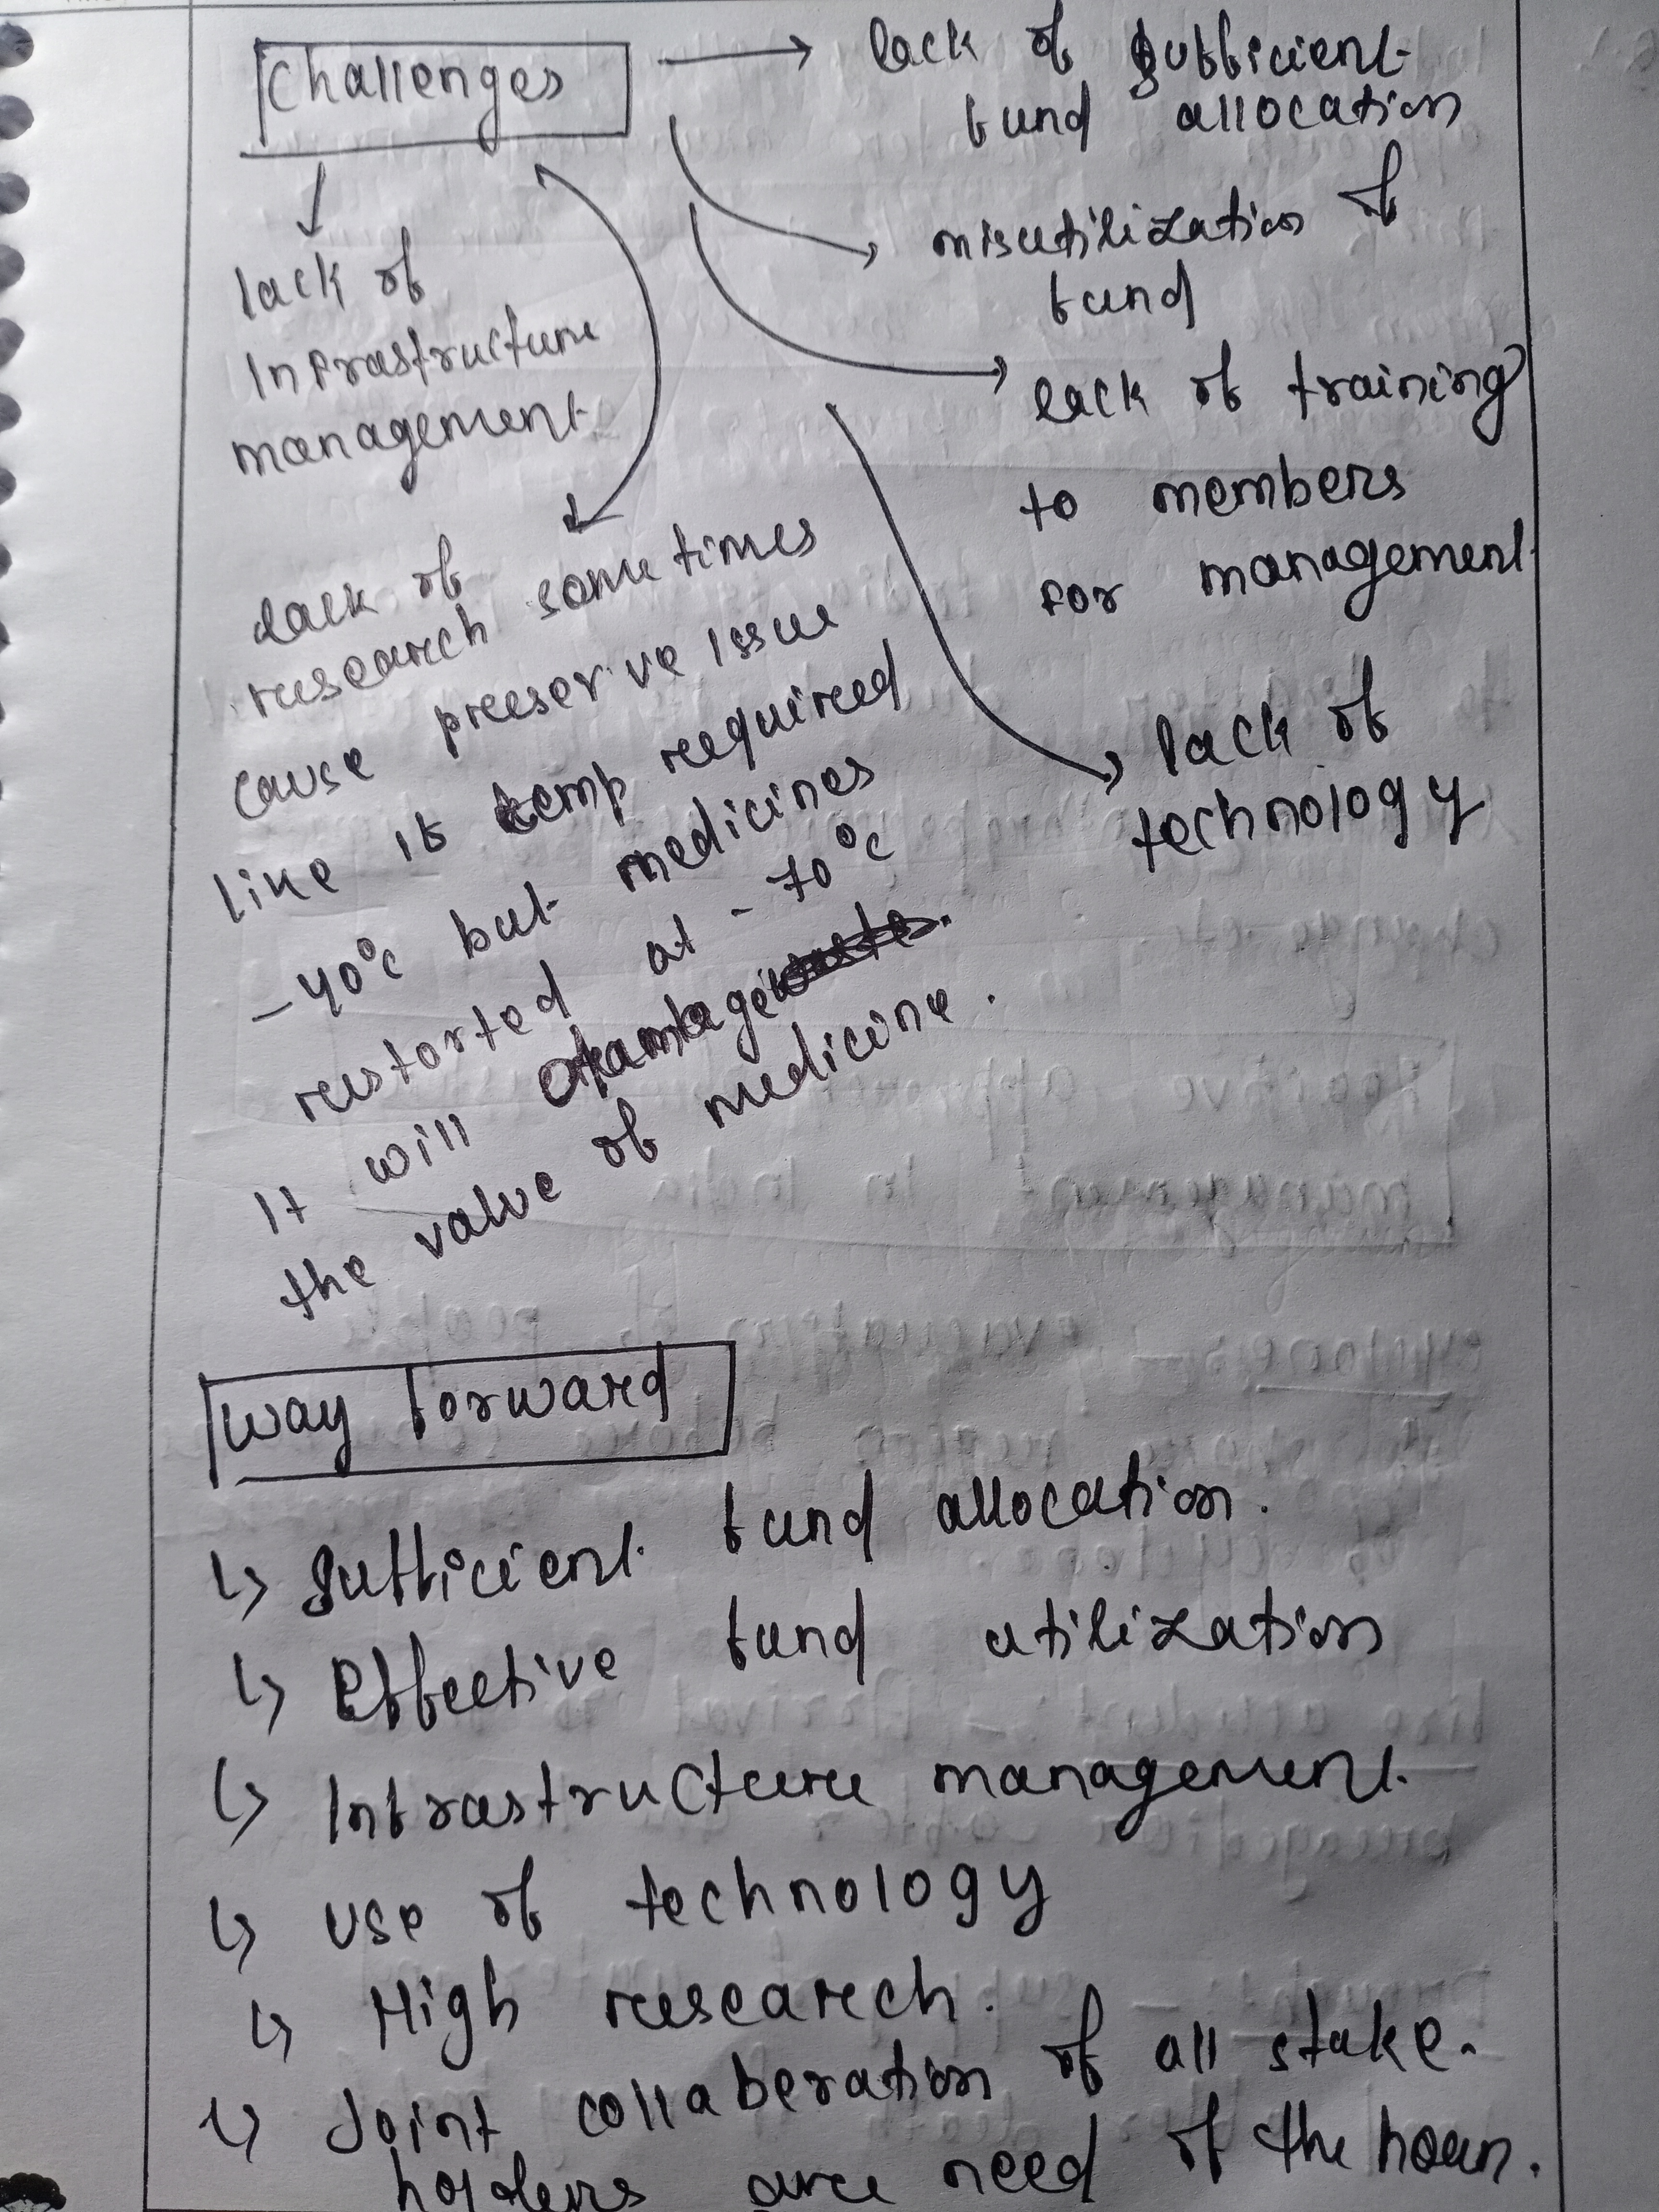 Challenges
lack of sufficient
fund allocation
misutilization of
fund
lack of training
to members
for management
lack of
technology
lack of
Infrastructure
management
lack of
research sometimes
cause preeserve issue
like if temp required
-40°c but medicines
restorted at -70°c
It will damage
the value of medicine.
way forward
↳ Sufficient fund allocation.
↳ Effective fund utilization
↳ Infrastructure management
↳ use of technology
↳ High research.
↳ Joint collaberation of all stake-
holders are need of the hour.